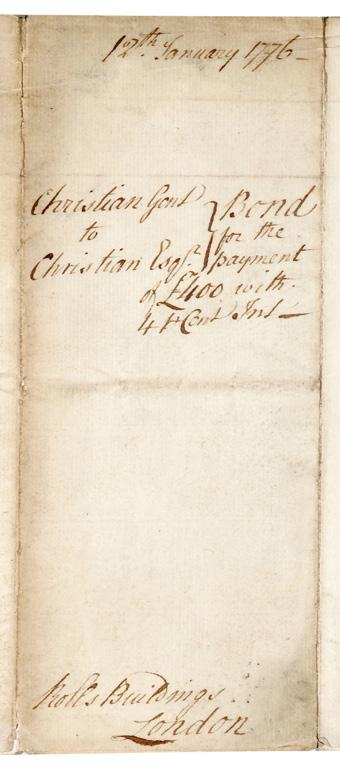 12th. January 1776 –
Christian Gent
to
Christian Esqr.
Bond
for the
payment
of £400 with
4 P Cent Int –
Rolls Buildings
London